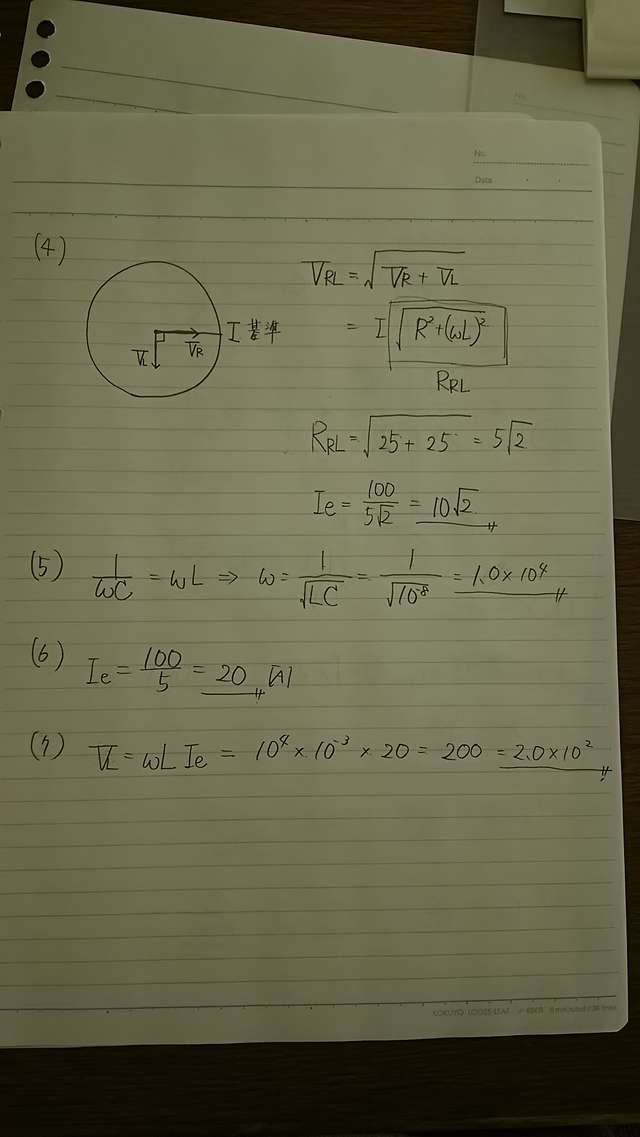 No.
Date
(4)
V_RL = √(V_R + V_L)
I 基準
V_R
V_L
= I √(R² + (ωL)²)
R_RL
R_RL = √(25 + 25) = 5√2
Ie = 100/5√2 = 10√2
(5) 1/ωC = ωL ⇒ ω = 1/√LC = 1/√10⁻⁸ = 1.0 × 10⁴
(6) Ie = 100/5 = 20 [A]
(7) V_L = ωL Ie = 10⁴ × 10⁻³ × 20 = 200 = 2.0 × 10²
KOKUYO LOOSE-LEAF